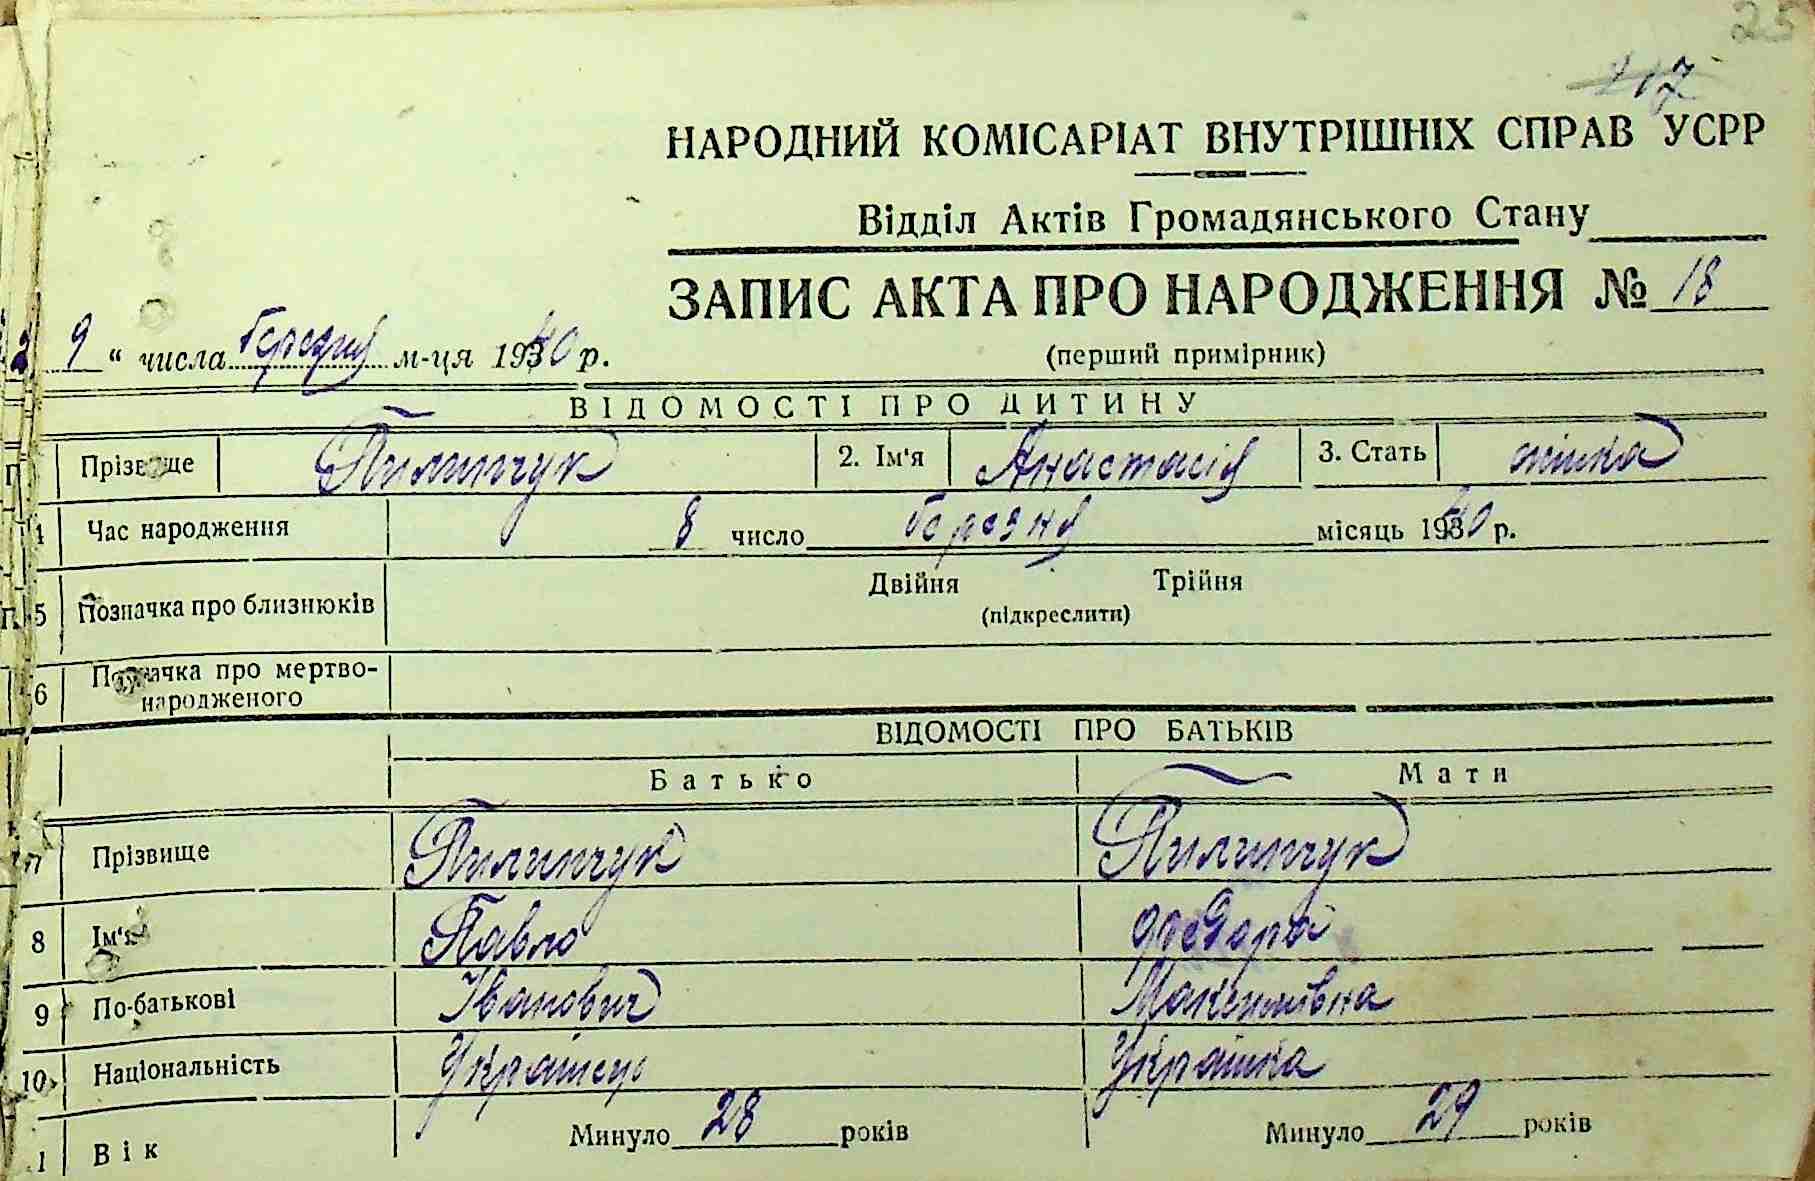 25
217
НАРОДНИЙ КОМІСАРІАТ ВНУТРІШНІХ СПРАВ УСРР
Відділ Актів Громадянського Стану
ЗАПИС АКТА ПРО НАРОДЖЕННЯ № 18
9 " числа березня м-ця 1940 р.
(перший примірник)
ВІДОМОСТІ ПРО ДИТИНУ
Прізвище Пилипчук 2. Ім'я Анастасія 3. Стать жінка
4 Час народження 8 число березня місяць 1940 р.
5 Позначка про близнюків Двійня Трійня
(підкреслити)
6 Позначка про мертво-
народженого
ВІДОМОСТІ ПРО БАТЬКІВ
Батько Мати
7 Прізвище Пилипчук Пилипчук
8 Ім'я Павло Федора
9 По-батькові Іванович Максимівна
10 Національність Українець Українка
1 Вік Минуло 28 років Минуло 29 років